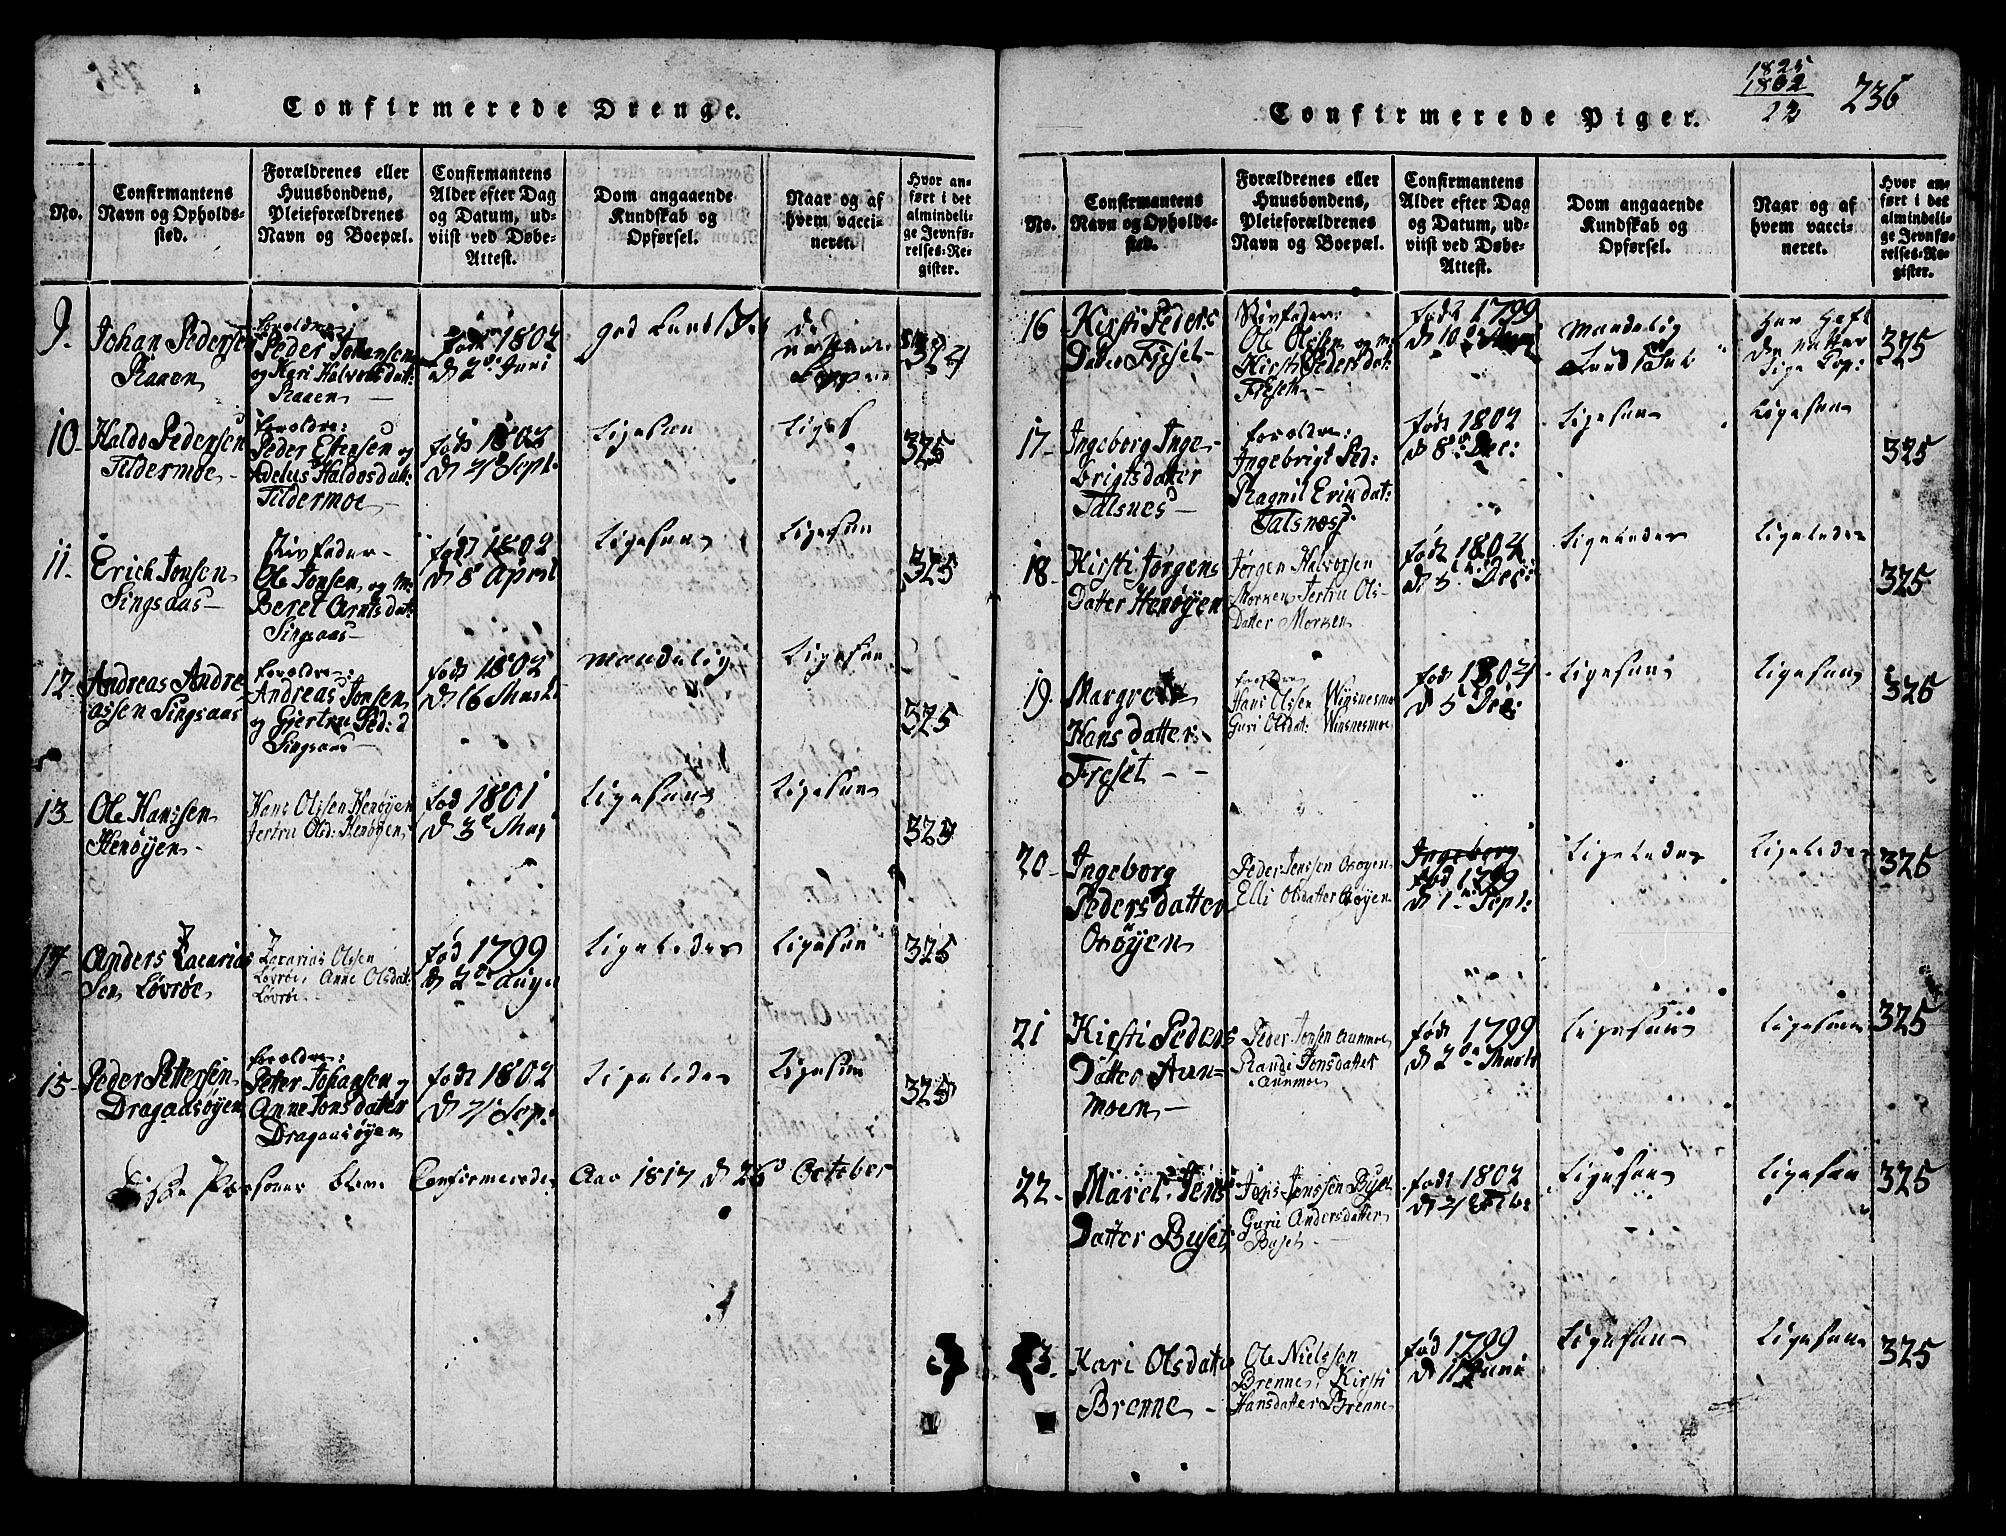 Confirmerede Drenge.
No.
Confirmantens
Navn og Opholds-
sted.
Forældrenes eller
Huusbondens,
Pleieforældrenes
Navn og Boepæl.
Confirmantens
Alder efter Dag
og Datum, ud-
viist ved Døbe-
Attest.
Dom angaaende
Kundskab og
Opførsel.
Naar og af
hvem vacci-
neret.
Hvor an-
ført i det
almindeli-
ge Jevnfø-
relses-Re-
gister.
9.
Johan Pederse
Raaen
foroldre:
Peder Johansen
og Kari Halvorsdat:
Raaen
født 1802
d 2de Juni
god
324
10.
Haldo Pedersen
Tildermoe
foroldre:
Peder Estensen og
Adelus Haldosdat:
Tildermoe
født 1802
Sept:
Ligesaa
325
11.
Erich Jonsen
Singsaas
Stivfader
Ole Jonsen, og M
Beret Arntsdat:
Singsaas
født 1802
d 8 April
Ligesaa
Ligesaa
325
12.
Andreas Andre
assen Singsaas
foroldre:
Andreas Jonsen
og Gjertru Ped: d
Singsaas
født 1802
d 16 Marti
Maadelig
Ligesaa
325
13
Ole Hanssen
Henøyen
Hans Olssen Henøyen
Jertru Olsd: Henøyen
fød 1801
d 3de May
Ligesaa
Ligesaa
325
14
Anders Zacarias
Sen Løvrøe
Zacarias Olssen
Løvrøe, Anne Olsdat:
Løvrøe
fød 1799
d 2de Augu
Ligeledes
Ligesaa
325
15
Peder Pettersen
Dragaasøyen
foroldre:
Peter Johansen og
Anne Jonsdater
Dragaasøyen
født 1802
Sep:
Ligeledes
Ligesaa
325
Disse Personer bleve Confirmerede Aar 1817 d 26 October
1825
1802
23
236
Confirmerede Piger.
No.
Confirmantens
Navn og Opholds-
sted.
Forældrenes eller
Huusbondens,
Pleieforældrenes
Navn og Boepæl.
Confirmantens
Alder efter Dag
og Datum, ud-
viist ved Døbe-
Attest.
Dom angaaende
Kundskab og
Opførsel.
Naar og af
hvem vacci-
neret.
Hvor an-
ført i det
almindeli-
ge Jevnfø-
relses-Re-
gister.
16
Kirsti Peders
Datter Freset
Stivfader:
Ole Olssen og M
Kirsti Pedersdat:
Freset
født 1799
d 10
Maadelig
Kundskab
Har Haft
De Natter
lige Cop:
325
17
Ingeborg Inge
brigtsdatter
Talsnes
foroldre:
Ingebrigt Ped:
Ragnil Erixdat:
Talsnes
født 1802
d 8 Dec:
Ligesaa
Ligesaa
325
18
Kirsti Jørgens
Datter Henøyen
Jørgen Halvorsen
Morken Jertru Ols-
Datter Morken
født 1802
d 5 Dec:
Ligeledes
Ligeledes
325
19
Margrete
Hans datter
Freset
foroldre
Hans Olssen Winsnesmo
Guri Olsdat: Winsnesmoe
født 1802
d 5 Dec:
Ligesaa
Ligesaa
325
20
Ingeborg
Pedersdatter
Osøyen
Peder Jenssen Osøyen
Elli Olsdatter Osøyen
Ingeborg
fød 1799
d 1 Sept:
Ligeledes
Ligeledes
325
21
Kirsti Peders
Datter Aun
moen
Peder Jonsen Aunmoe
Randi Jonsdatter
Aunmoe
født 1799
d 2de Marti
Ligesaa
Ligesaa
325
22
Maret Jens
Datter Buset
Jens Jenssen Buset
Guru Andersdatter
Buset
født 1802
Feb:
Ligesaa
Ligesaa
325
3
Kari Olsdater
Brenne
Ole Nielssen
Brenne, Kirsti
Hansdatter Brenne
fød 1799
d 11 Juni
Ligesaa
Ligesaa
325